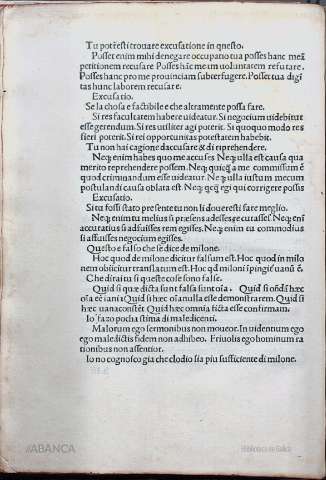 Tu potresti trouare excusatione in questo.
Posset enim mihi denegare occupatio tua posses hanc meã
petitionem recusare Posses hãc meam uoluntatem refutare.
Posses hanc pro me prouinciam subterfugere. Posset tua digni
tas hunc laborem recusare.
Excusatio.
Se la chosa e factibile e che altramente possa fare.
Si res facultatem habere uideatur. Si negocium uidebitur
esse gerendum. Si res utiliter agi poterit. Si quoquo modo res
fieri poterit. Si rei opportunitas potestatem habebit.
Tu non hai cagione daccusare & di riprehendere.
Neq; enim habes quo me accuses Neq; ulla est causa qua
merito reprehendere possem. Neq; quicq̃ a me commissum ẽ
quod criminandum esse uideatur. Neq; ulla iustum mecum
postulandi causa oblata est. Neq; qcq̃ egi qui corrigere possis
Excusatio.
Si tu fossi stato presente tu non li doueresti fare meglio.
Neq; enim tu melius si præsens adesses, ꝓcurasses. Neq; eni
accuratius si adfuisses rem egisses. Neq; enim tu commodius
si affuisses negocium egisses.
Questo e falso che se dice de milone.
Hoc quod de milone dicitur falsum est. Hoc quod in milo
nem obiicitur translatum est. Hoc qd miloni ĩpingit' uanũ ẽ.
Che dirai tu si queste cose sono false.
Quid si quæ dicta sunt falsa sunt oĩa. Quid si oñdã hæc
oĩa eẽ ianĩa Quid si hæc oĩa nulla esse demonstrarem. Quid si
hæc uana constẽt Quid hæc omnia ficta esse confirmam.
Io fazo pocha stima di maledicenti.
Malorum ego sermonibus non moueor. In uidentum ego
ego maledictis fidem non adhibeo. Friuolis ego hominum ra
tionibus non assentior.
Io no cognosco gia che clodio sia piu sufficiente di milone.
ABANCA
Biblioteca de Galicia